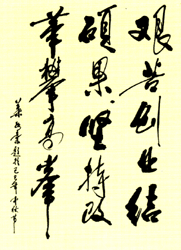 艰苦创业结
硕果坚持改
革攀高峰